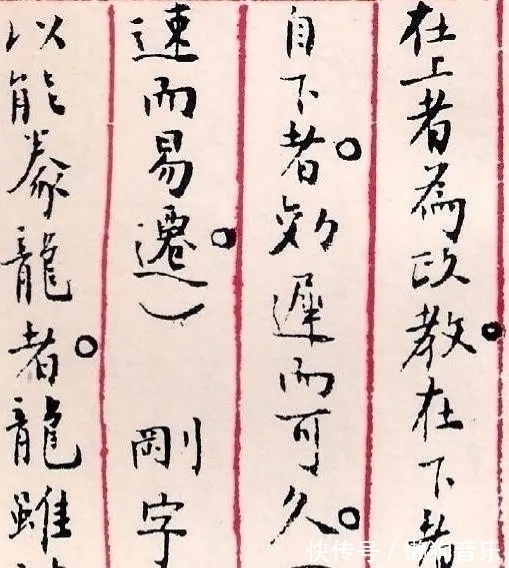 在上者為政教在下者
自下者効遲而可久
速而易遷） 剛字
以能豢龍者龍雖
快传号／
音乐